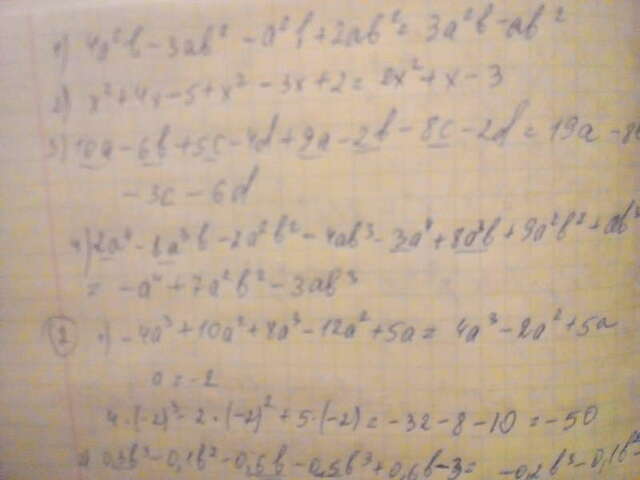 1) 4a²b - 3ab² - a²b + 2ab² = 3a²b - ab²
2) x² + 4x - 5 + x² - 3x + 2 = 2x² + x - 3
3) 10a - 6b + 5c - 4d + 9a - 2b - 8c - 2d = 19a - 8b
- 3c - 6d
4) 2a⁴ - 8a³b - 2a²b² - 4ab³ - 3a⁴ + 8a³b + 9a²b² + ab³
= -a⁴ + 7a²b² - 3ab³
2 1) -4a³ + 10a² + 8a³ - 12a² + 5a = 4a³ - 2a² + 5a
a = -2
4·(-2)³ - 2·(-2)² + 5·(-2) = -32 - 8 - 10 = -50
2) 0,3b³ - 0,1b² - 0,6b - 0,5b³ + 0,6b - 3 = -0,2b³ - 0,1b²